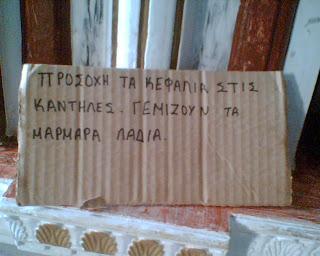 ΠΡΟΣΟΧΗ ΤΑ ΚΕΦΑΛΙΑ ΣΤΙΣ
ΚΑΝΤΗΛΕΣ. ΓΕΜΙΖΟΥΝ ΤΑ
ΜΑΡΜΑΡΑ ΛΑΔΙΑ.